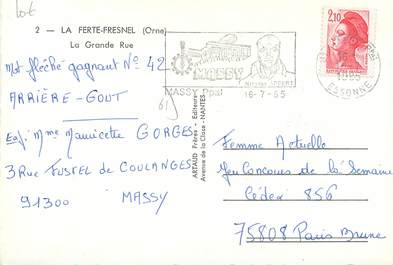 lot
2 - LA FERTE-FRESNEL (Orne)
La Grande Rue
Mot fléché gagnant N° 42
ARRIÈRE-GOUT
Exp: Mme Mauricette GORGES
3 Rue FUSTEL de COULANGES
91300 MASSY
61
ARTAUD Frères - Editeurs
Avenue de la Close - NANTES
MASSY
MASSY Ppal
16-7-85
2,10
ESSONNE
Femme Actuelle
Jeu Concours de la Semaine
Cédex 856
75808 Paris Brune